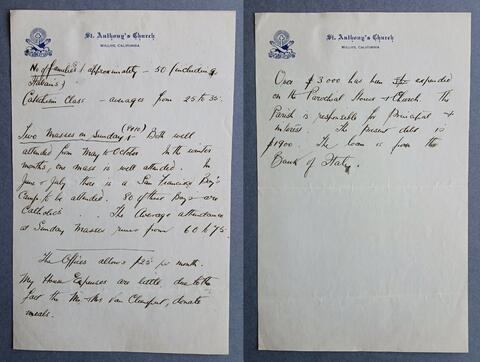 St. Anthony's Church
WILLITS, CALIFORNIA
No. of families / approximately - 50 (including
Italians)
Catechism Class - averages from 25 to 35.
Two Masses on Sunday (9&10) - Both well
attended from May to October. In the winter
months, one mass is well attended. In
June & July, there is a San Francisco Boy's
Camp to be attended. 80 of these Boys are
Catholics. The Average attendance
at Sunday Masses runs from 60 to 75.
The Offices allows $25 per month.
My House Expenses are little, due to the
fact the Mr. & Mrs Van Cleemput, donate
meals.
St. Anthony's Church
WILLITS, CALIFORNIA
Over $3,000 has been expended
on the Parochial House & Church. The
Parish is responsible for Principal &
interest. The present debt is
$1900. The loan is from the
Bank of Italy.